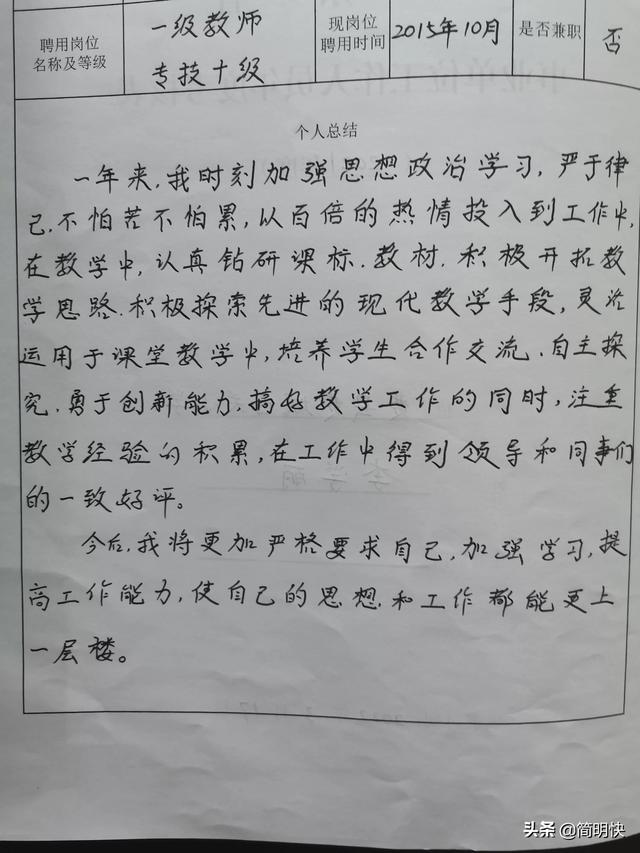 聘用岗位
名称及等级
一级教师
专技十级
现岗位
聘用时间
2015年10月
是否兼职
否
个人总结
一年来,我时刻加强思想政治学习,严于律
己,不怕苦不怕累,以百倍的热情投入到工作中,
在教学中,认真钻研课标、教材,积极开拓教
学思路,积极探索先进的现代教学手段,灵活
运用于课堂教学中,培养学生合作交流、自主探
究、勇于创新能力,搞好教学工作的同时,注重
教学经验的积累,在工作中得到领导和同事们
的一致好评。
今后,我将更加严格要求自己,加强学习,提
高工作能力,使自己的思想和工作都能更上
一层楼。
头条 @简明快